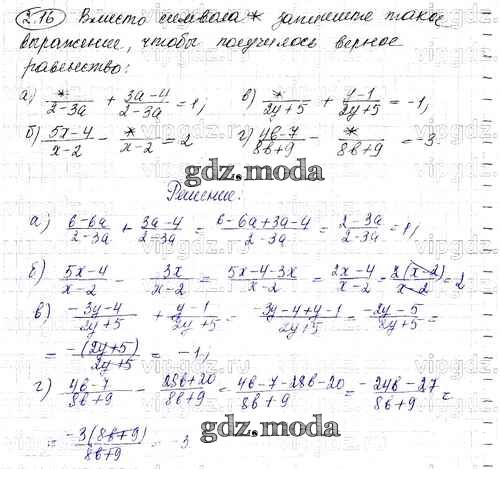 2.16 Вместо символа * запишите такое
выражение, чтобы получилось верное
равенство:
а) */(2-3a) + (3a-4)/(2-3a) = 1; в) */(2y+5) + (y-1)/(2y+5) = -1;
б) (5x-4)/(x-2) - */(x-2) = 2 г) (4b-7)/(8b+9) - */(8b+9) = -3.
gdz.moda
Решение:
а) (6-6a)/(2-3a) + (3a-4)/(2-3a) = (6-6a+3a-4)/(2-3a) = (2-3a)/(2-3a) = 1;
б) (5x-4)/(x-2) - 3x/(x-2) = (5x-4-3x)/(x-2) = (2x-4)/(x-2) = 2(x-2)/(x-2) = 2
в) (-3y-4)/(2y+5) + (y-1)/(2y+5) = (-3y-4+y-1)/(2y+5) = (-2y-5)/(2y+5) =
= -(2y+5)/(2y+5) = -1;
г) (4b-7)/(8b+9) - (28b+20)/(8b+9) = (4b-7-28b-20)/(8b+9) = (-24b-27)/(8b+9) =
= -3(8b+9)/(8b+9) = -3
gdz.moda